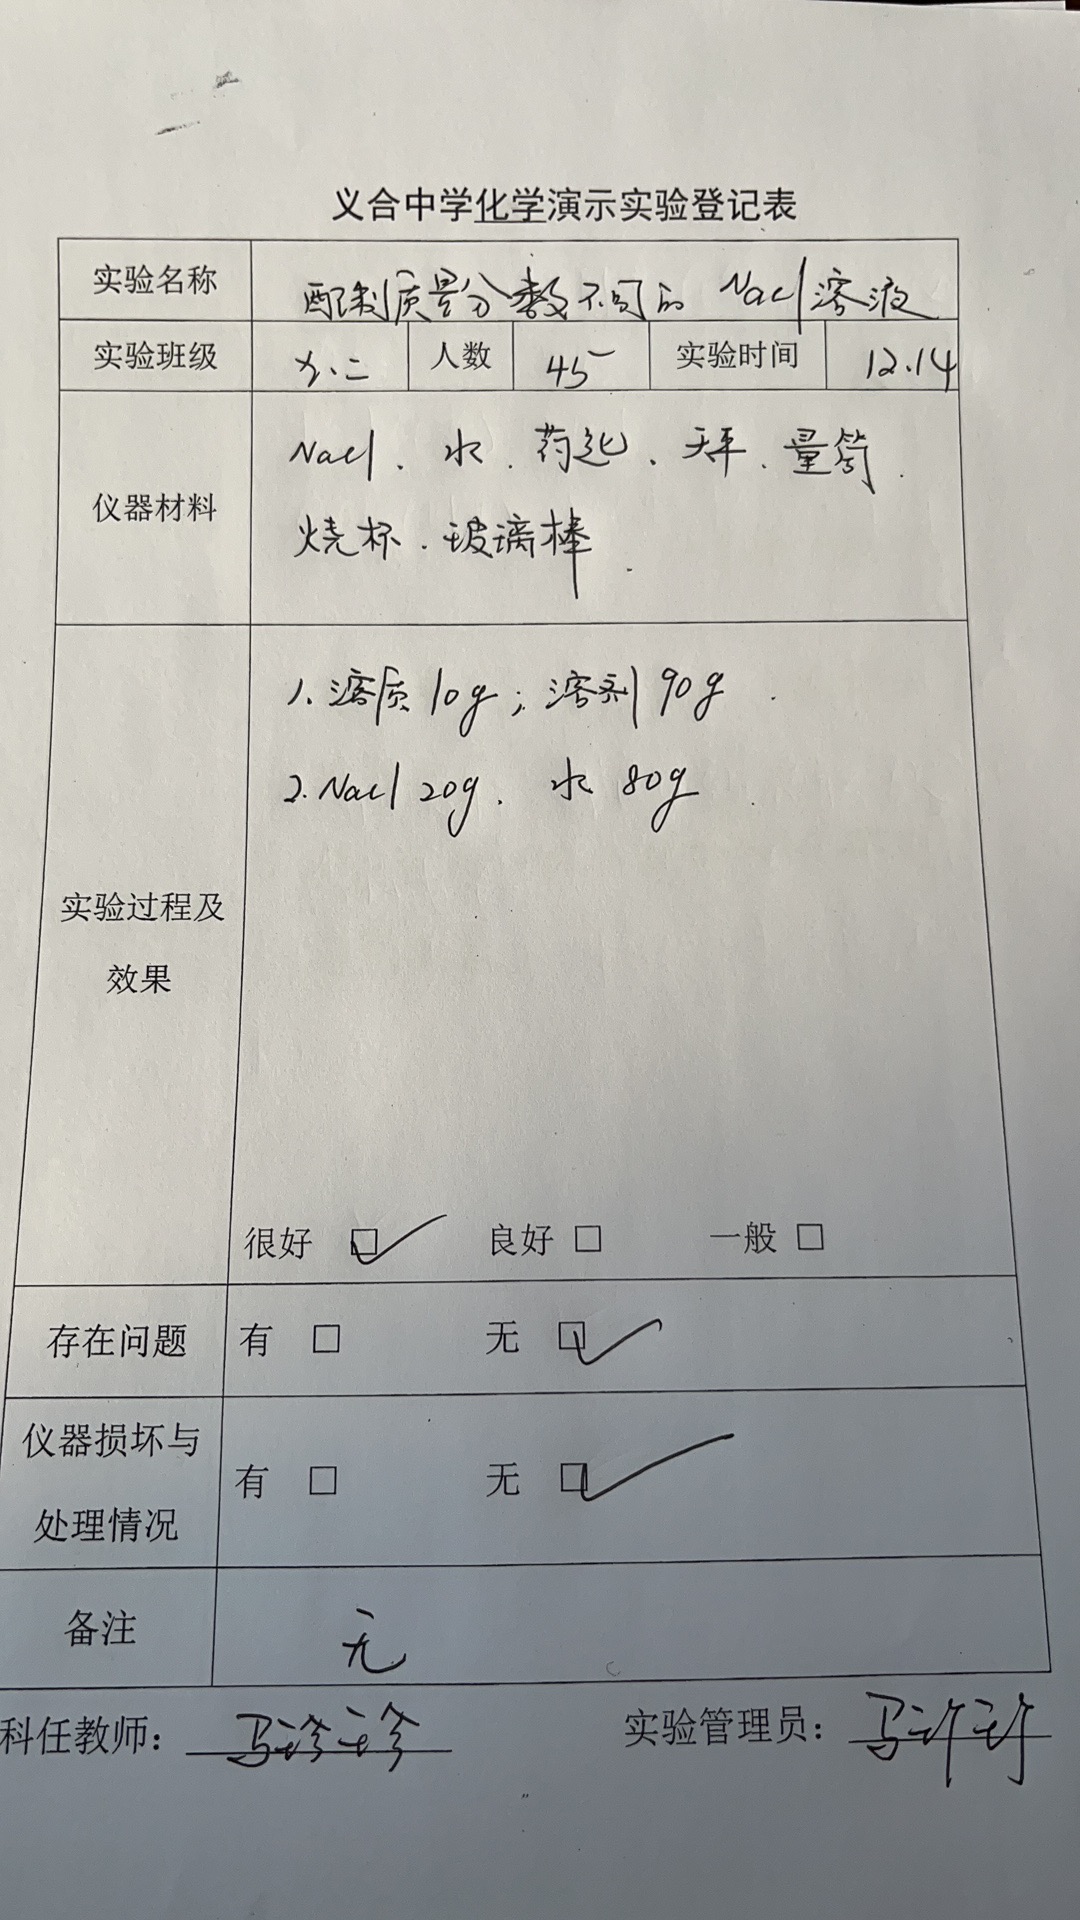 义合中学化学演示实验登记表
实验名称 配制质量分数不同的 NaCl溶液
实验班级 九.二 人数 45 实验时间 12.14
仪器材料
NaCl、水、药匙、天平、量筒、
烧杯、玻璃棒.
1.溶质10g;溶剂90g
2.NaCl 20g、水80g
实验过程及
效果
很好 良好 一般
存在问题 有 无
仪器损坏与
有 无
处理情况
备注 无
科任教师:马珍珍 实验管理员:马